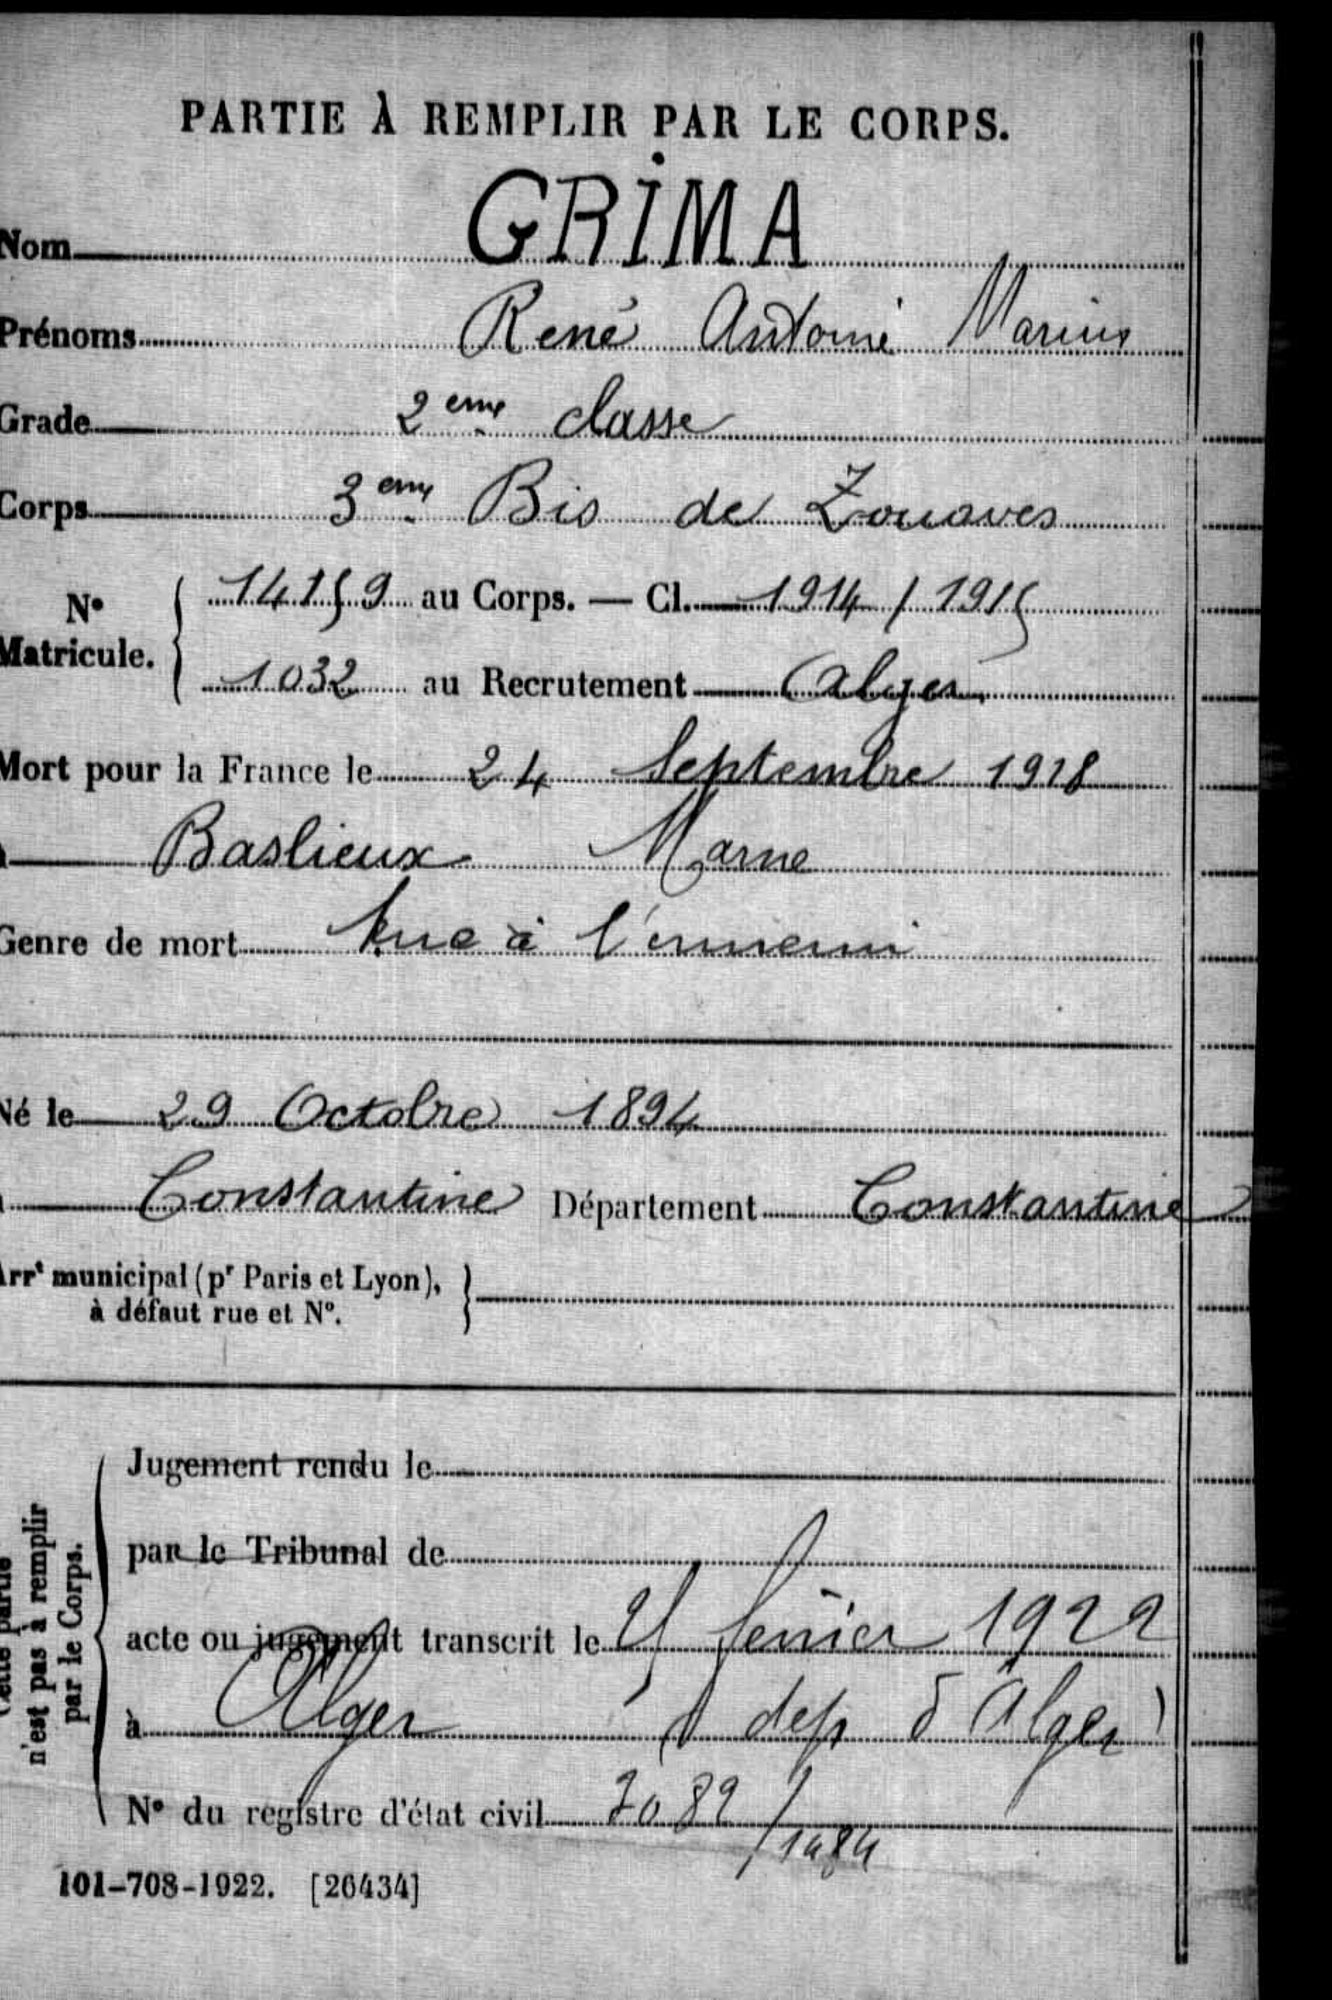 PARTIE À REMPLIR PAR LE CORPS.
Nom GRIMA
Prénoms René Antoine Marius
Grade 2eme classe
Corps 3eme Bis de Zouaves
N° Matricule. 14159 au Corps. — Cl. 1914 / 1915
1032 au Recrutement Alger
Mort pour la France le 24 Septembre 1918
Baslieux Marne
Genre de mort tué à l'ennemi
Né le 29 Octobre 1894
Constantine Département Constantine
Arrt municipal (pr Paris et Lyon),
à défaut rue et N°.
Jugement rendu le
par le Tribunal de
acte ou jugement transcrit le février 1922
à Alger (dep d'Alger)
N° du registre d'état civil
n'est pas à remplir
par le Corps.
101-708-1922. [26434]